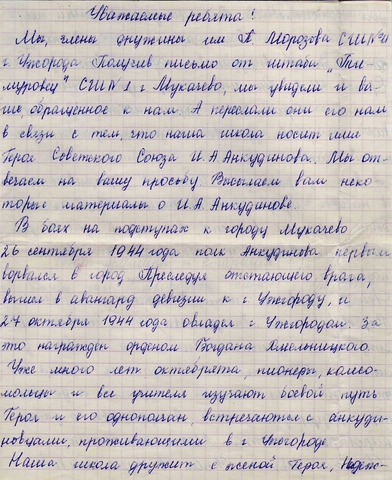 Уважаемые ребята!
Мы, члены дружины им П. Морозова СШ №
г Ужгорода Получив письмо от штаба „Ти-
муровец" СШ №1 г Мукачево, мы увидели и ва-
ше, обращенное к нам. А переслали они его нам
в связи с тем, что наша школа носит имя
Героя Советского Союза И.А. Анкудинова. Мы от-
вечаем на вашу просьбу. Высылаем вам неко-
торые материалы о И.А. Анкудинове.
В боях на подступах к городу Мукачево
26 сентября 1944 года полк Анкудинова первым
ворвался в город Преследуя отстающего врага,
вышел в авангард девизии к г Ужгороду, и
27 октября 1944 года овладел г Ужгородом. За
это награжден орденом Богдана Хмельницкого.
Уже много лет октябрета, пионеры, комсо-
мольцы и все учителя изучают боевой путь
Героя и его однополчан, встречаются с анкуди-
новцами, проживающими в г Ужгороде.
Наша школа дружит с женой Героя, Надеж-